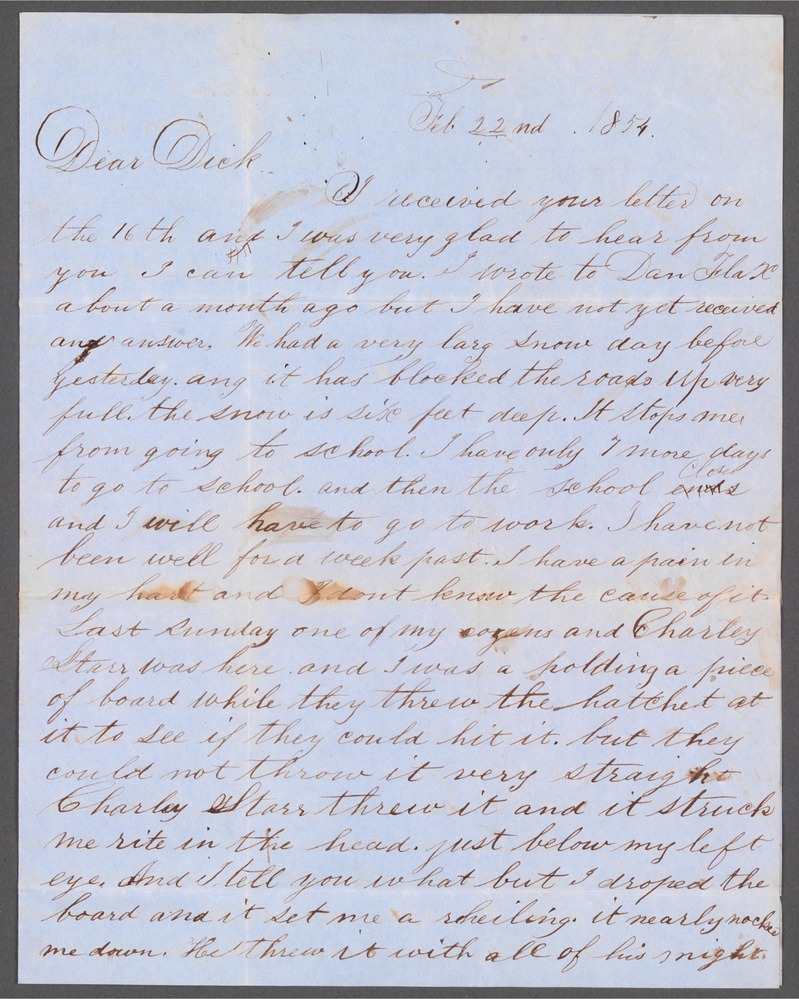 Feb 22nd. 1854.
Dear Dick
I received your letter on
the 16th and I was very glad to hear from
you I can tell you. I wrote to Dan Flax
about a month ago but I have not yet received
any answer. We had a very larg snow day before
yesterday. ang it has blocked the roads up very
full. the snow is six feet deep. It stops me
from going to school. I have only 7 more days
to go to school. and then the school ends closes
and I will have to go to work. I have not
been well for a week past. I have a pain in
my hart and I dont know the cause of it.
Last sunday one of my cozens and Charley
Starr was here and I was a holding a piece
of board while they threw the hatchet at
it to see if they could hit it. but they
could not throw it very straight
Charley Starr threw it and it struck
me rite in the head. just below my left
eye. And I tell you what but I droped the
board and it set me a rheiling. it nearly nocked
me down. He threw it with all of his might.